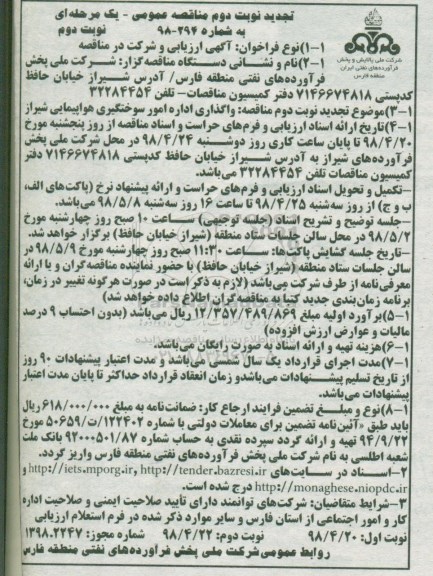 تجدید نوبت دوم مناقصه عمومی - یک مرحله‌ای
به شماره ۲۹۴-۹۸ نوبت دوم
شرکت ملی پالایش و پخش
فرآورده‌های نفتی ایران
منطقه فارس
۱-۱)نوع فراخوان: آگهی ارزیابی و شرکت در مناقصه
۱-۲)نام و نشانی دستگاه مناقصه‌گزار: شرکت ملی پخش
فرآورده‌های نفتی منطقه فارس/ آدرس شیراز خیابان حافظ
کدپستی ۷۱۴۶۶۷۴۸۱۸ دفتر کمیسیون مناقصات- تلفن ۳۲۲۸۴۴۵۴
۱-۳)موضوع تجدید نوبت دوم مناقصه: واگذاری اداره امور سوختگیری هواپیمایی شیراز
۱-۴)تاریخ ارائه اسناد ارزیابی و فرم‌های حراست و اسناد مناقصه از روز پنجشنبه مورخ
۹۸/۴/۲۰ تا پایان ساعت کاری روز دوشنبه ۹۸/۴/۲۴ در محل شرکت ملی پخش
فرآورده‌های شیراز به آدرس شیراز خیابان حافظ کدپستی ۷۱۴۶۶۷۴۸۱۸ دفتر
کمیسیون مناقصات تلفن ۳۲۲۸۴۴۵۴ می‌باشد.
-تکمیل و تحویل اسناد ارزیابی و فرم‌های حراست و ارائه پیشنهاد نرخ (پاکت‌های الف،
ب و ج) از روز سه‌شنبه ۹۸/۴/۲۵ تا ساعت ۱۶ روز سه‌شنبه ۹۸/۵/۸ می‌باشد.
-جلسه توضیح و تشریح اسناد (جلسه توجیهی) ساعت ۱۰ صبح روز چهارشنبه مورخ
۹۸/۵/۲ در محل سالن جلسات ستاد منطقه (شیراز خیابان حافظ) برگزار خواهد شد.
-تاریخ جلسه گشایش پاکت‌ها: ساعت ۱۱:۳۰ صبح روز چهارشنبه مورخ ۹۸/۵/۹ در
سالن جلسات ستاد منطقه (شیراز خیابان حافظ) با حضور نماینده مناقصه‌گران و با ارائه
معرفی‌نامه از طرف شرکت می‌باشد (لازم به ذکر است در صورت هرگونه تغییر در زمان،
برنامه زمان‌بندی جدید کتبا به مناقصه‌گران اطلاع داده خواهد شد)
۱-۵)برآورد اولیه مبلغ ۱۲/۳۵۷/۴۸۹/۸۶۹ ریال می‌باشد (بدون احتساب ۹ درصد
مالیات و عوارض ارزش افزوده)
۱-۶)هزینه تهیه و ارائه اسناد به صورت رایگان می‌باشد.
۱-۷)مدت اجرای قرارداد یک سال شمسی می‌باشد و مدت اعتبار پیشنهادات ۹۰ روز
از تاریخ تسلیم پیشنهادات می‌باشدو زمان انعقاد قرارداد حداکثر تا پایان مدت اعتبار
پیشنهادات می‌باشد.
۱-۸)نوع و مبلغ تضمین فرایند ارجاع کار: ضمانت‌نامه به مبلغ ۶۱۸/۰۰۰/۰۰۰ ریال
باید طبق «آئین‌نامه تضمین برای معاملات دولتی با شماره ۱۲۳۴۰۲/ت/۵۰۶۵۹ مورخ
۹۴/۹/۲۲ تهیه و ارائه گردد سپرده نقدی به حساب شماره ۹۲۰۰۰۵۰۱/۸۷ بانک ملت
شعبه اطلسی به نام شرکت ملی پخش فرآورده‌های نفتی منطقه فارس واریز گردد.
۲-اسناد در سایت‌های http://iets.mporg.ir, http://tender.bazresi.ir و
http://monaghese.niopdc.ir درج شده است.
۳-شرایط متقاضیان: شرکت‌های توانمند دارای تأیید صلاحیت ایمنی و صلاحیت اداره
کار و امور اجتماعی از استان فارس و سایر موارد ذکر شده در فرم استعلام ارزیابی
نوبت اول: ۹۸/۴/۲۰ نوبت دوم: ۹۸/۴/۲۲ شماره مجوز: ۱۳۹۸.۲۲۴۷
روابط عمومی شرکت ملی پخش فرآورده‌های نفتی منطقه فارس